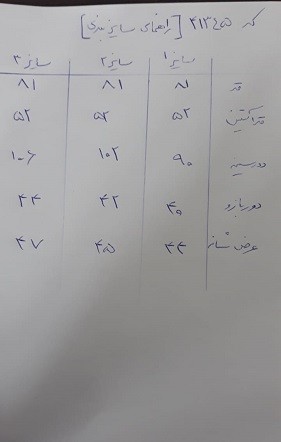 کد ۴۱۳۴۵۵ [راهنمای سایزبندی]
سایز ۱ سایز ۲ سایز ۳
قد ۸۱ ۸۱ ۸۱
قد آستین ۵۲ ۵۲ ۵۲
دور سینه ۹۰ ۱۰۲ ۱۰۶
دور بازو ۴۰ ۴۲ ۴۴
عرض شانه ۴۴ ۴۵ ۴۷